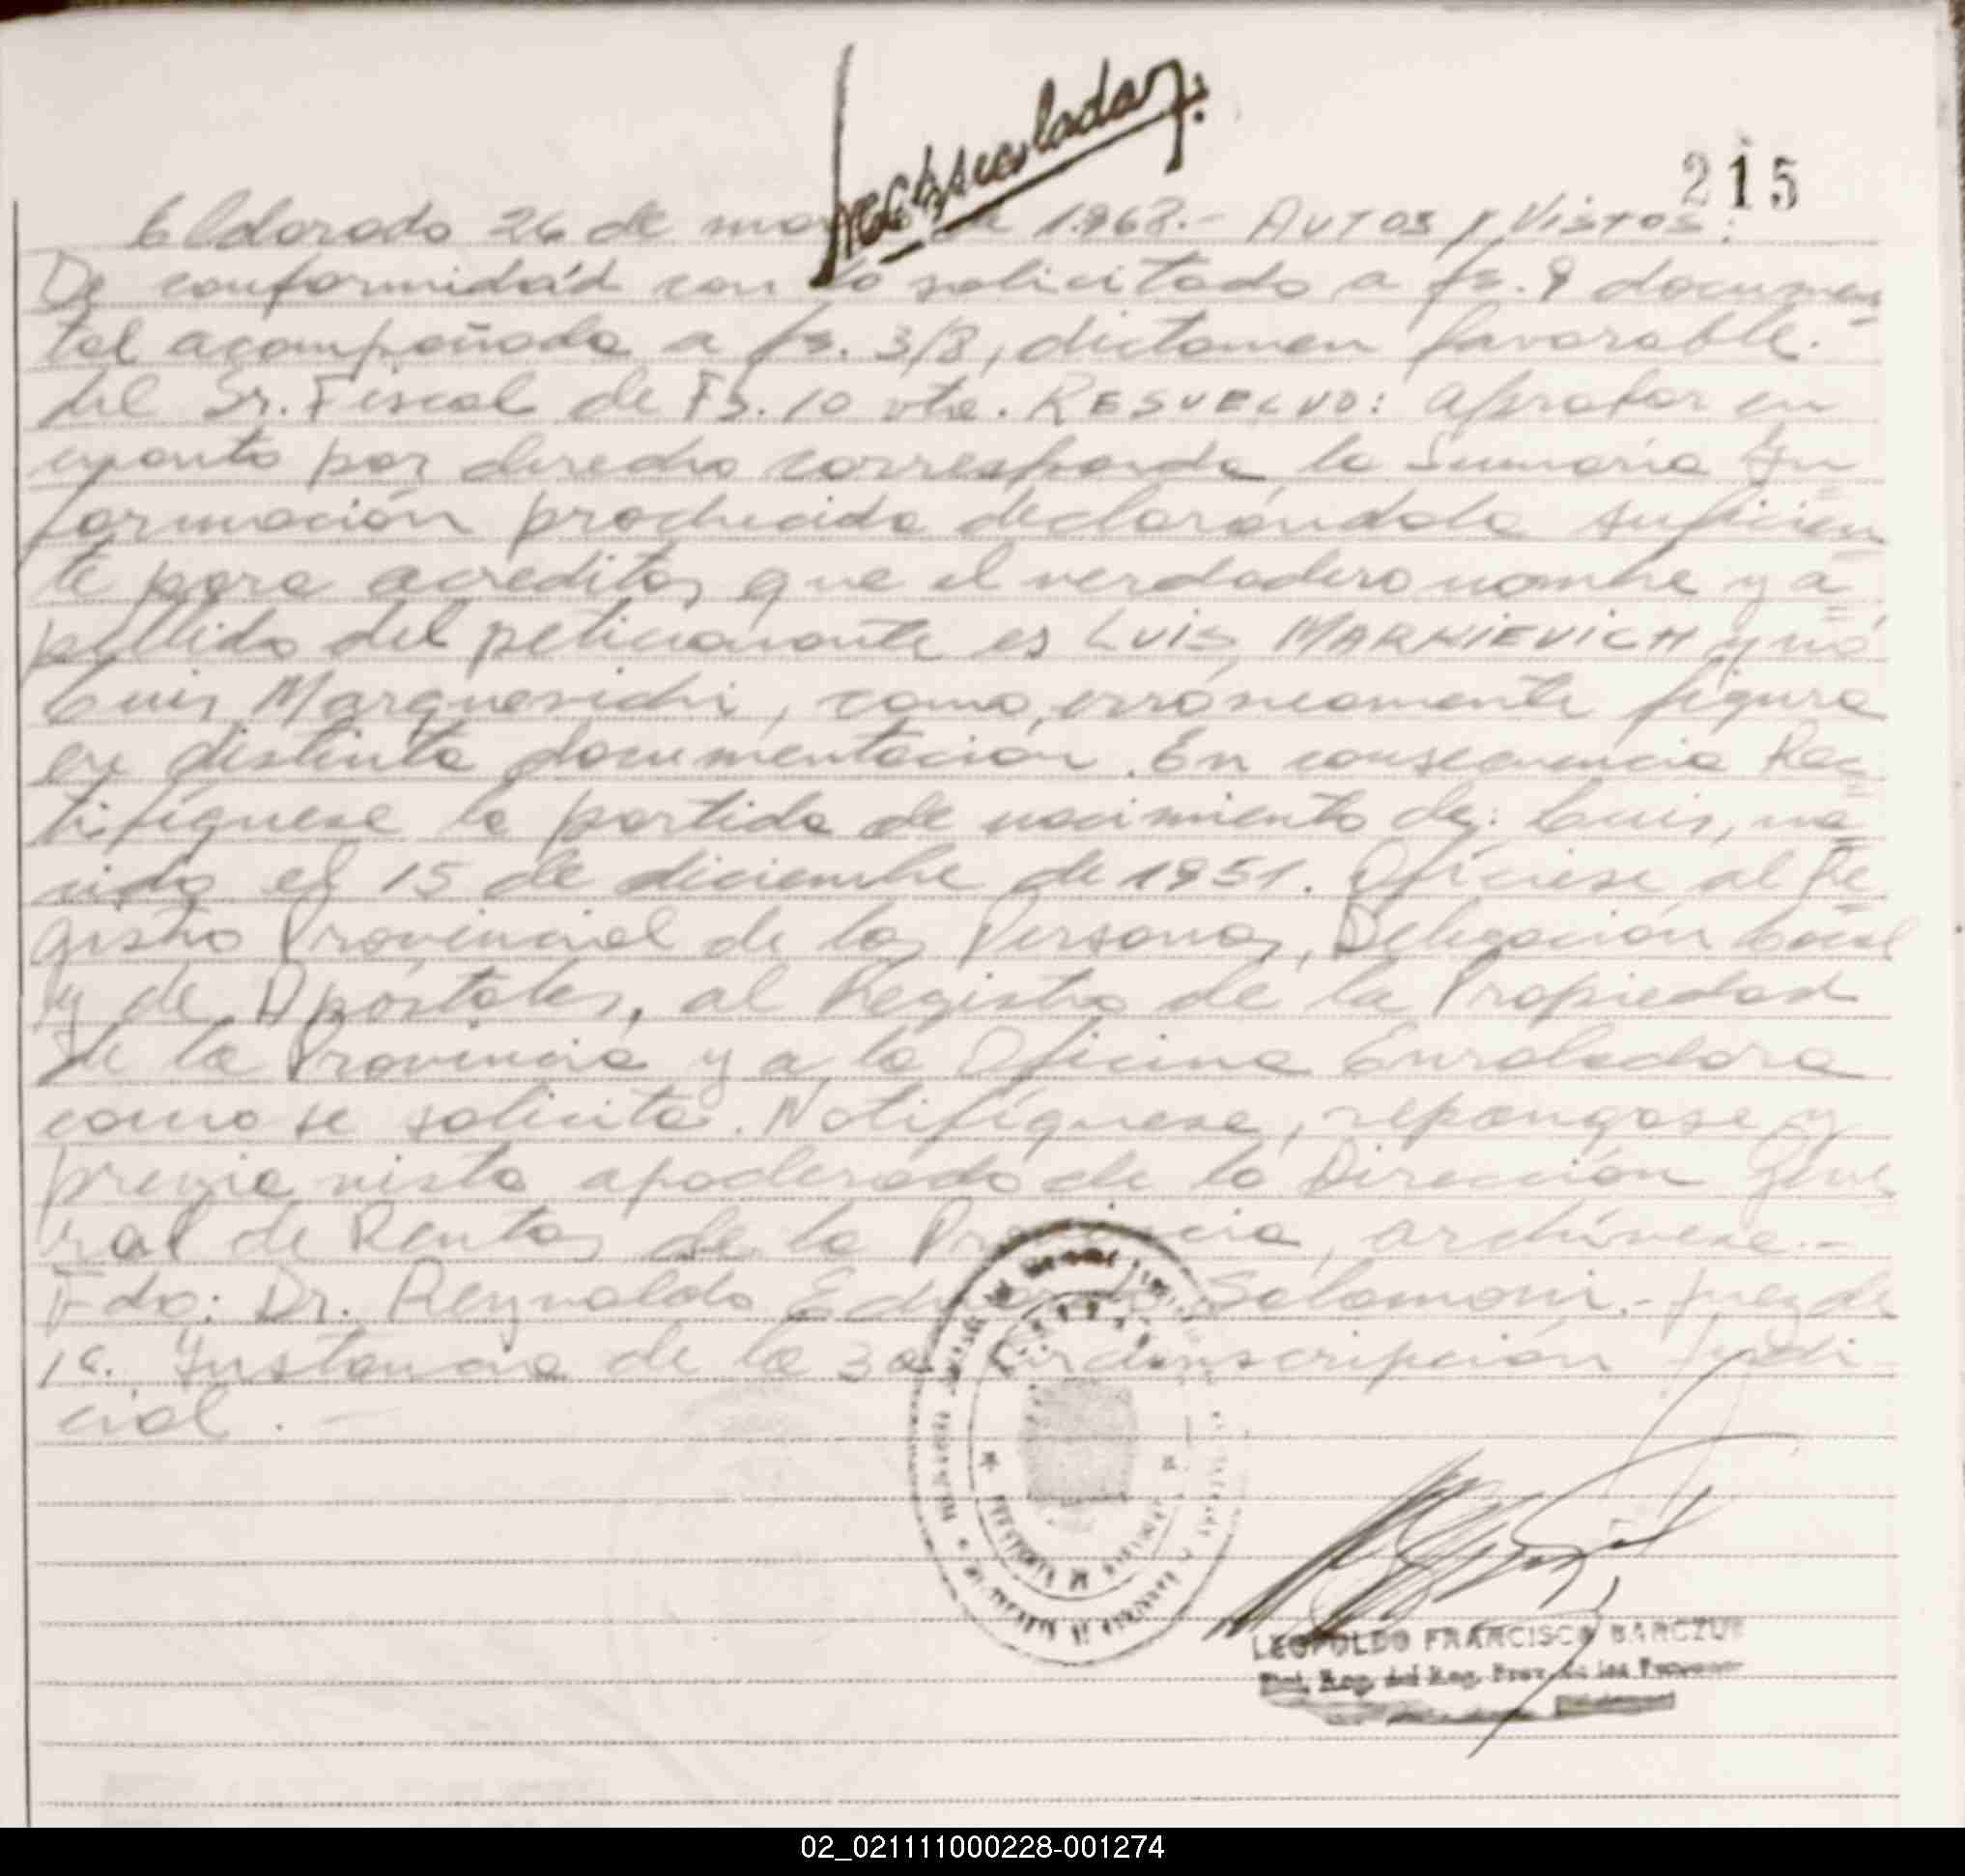 215
Eldorado 26 de de 1.968.- AUTOS Y VISTOS:
De conformidad con lo solicitado a fs. 9 documen
tal acompañada a fs. 3/8, dictamen favorable
del Sr. Fiscal de Fs. 10 vta. RESUELVO: aprobar en
cuanto por derecho corresponda la Sumaria In
formación producida declarándola suficien
te para acreditar que el verdadero nombre y a
pellido del peticionante es LUIS MARKIEVICH y no
Luis Marquevichi, como erróneamente figura
en distinta documentación. En consecuencia Rec
tifíquese la partida de nacimiento de: Luis, na
cido el 15 de diciembre de 1951. Ofíciese al Re
gistro Provincial de las Personas, Delegación local
y de Apóstoles, al Registro de la Propiedad
de la Provincia y a la Oficina Enroladora
como se solicita. Notifíquese, repóngase y
previa vista apoderado de la Dirección Gene
ral de Rentas de la Provincia, archívese.-
Fdo: Dr. Reynaldo Eduardo Salomoni.- Juez de
1a. Instancia de la 3a Circunscripción Judi
cial.-
LEOPOLDO FRANCISCO BARCZUK
Reg. del Reg. Prov. de las Personas
02_021111000228-001274